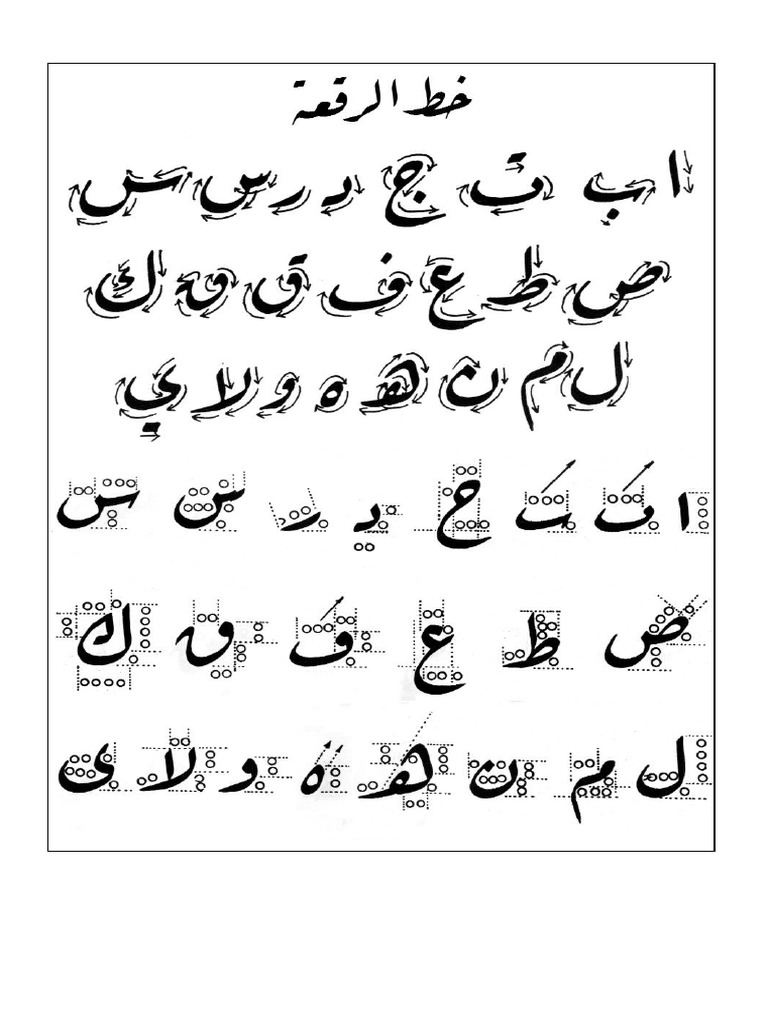 خط الرقعة
ا ب ت ج د ر س س
ص ط ع ف ق ق ك
ل م ن ه ه و لا ي
ا ٮ ٮ ح د ر س س
ص ط ع ڡ ٯ ك
ل م ن ه ه و لا ى